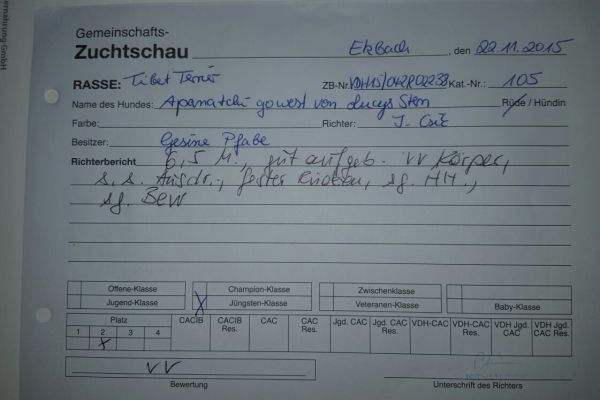 ernährung GmbH
Gemeinschafts-
Zuchtschau Ekbach, den 22.11.2015
RASSE: Tibet Terrier ZB-Nr. Kat.-Nr.: 105
Name des Hundes: Apanatchi gowest von Lucys Stern Rüde / Hündin
Farbe: Richter: J.
Besitzer: Gesine Pfabe
Richterbericht 6,5 M., gut aufgeb. vv Körper,
s.s. Ausdr., fester Rücken, sg. HH.,
sg. Bew
Offene-Klasse Champion-Klasse Zwischenklasse
Jugend-Klasse X Jüngsten-Klasse Veteranen-Klasse Baby-Klasse
Platz CACIB CACIB Res. CAC CAC Res. Jgd. CAC Jgd. CAC Res. VDH-CAC VDH-CAC Res. VDH Jgd. CAC VDH Jgd. CAC Res.
1 2 3 4
X
vv
Bewertung Unterschrift des Richters